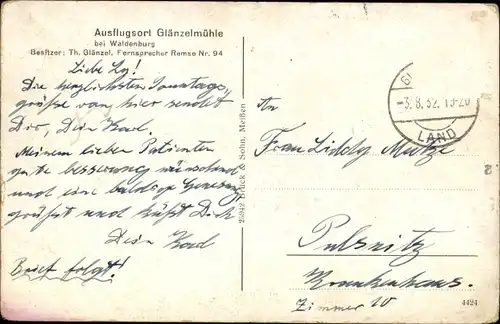 Ausflugsort Glänzelmühle
bei Waldenburg
Besitzer: Th. Glänzel, Fernsprecher Remse Nr. 94
Liebe Ly!
Die herzlichsten Sonntags-
grüße von hier sendet
Dir, Dein Karl.
Meinem lieben Patienten
gute besserung wünschend
und eine baldige Genesung
grüßt und küßt Dich
Dein Karl
Brief folgt!
25942 Brück & Sohn, Meißen
-3.8.32.
LAND
An
Frau Liddy
Pulsnitz
Krankenhaus.
Zimmer 10
4424